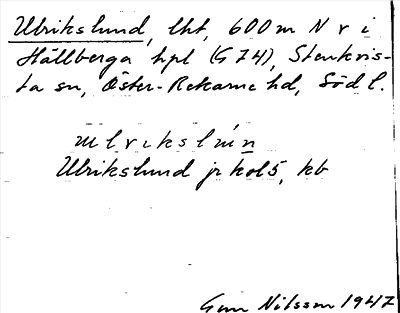 Ulrikslund, lht, 600 m N v i
Hällberga hpl (G 74), Stenkvis-
ta sn, Öster-Rekarne hd, Söd l.
ulrikslún
Ulrikslund jr kol 5, kb
Gun Nilsson 1947